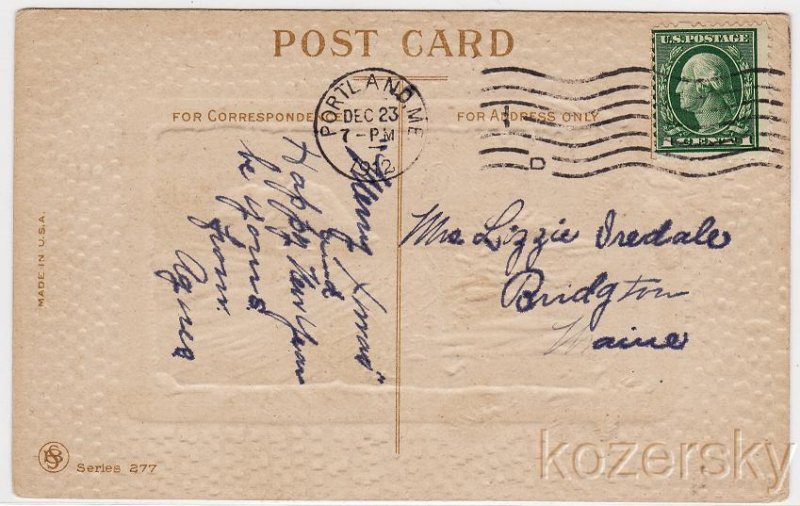 POST CARD
FOR CORRESPONDENCE
FOR ADDRESS ONLY
PORTLAND, ME
DEC 23
7-PM
1912
D
U.S. POSTAGE
1 CENT 1
"Merry Xmas"
and
Happy New Year
be yours
from
Agnes
Mrs Lizzie Iredale
Bridgton
Maine
MADE IN U.S.A.
Series 277
kozersky